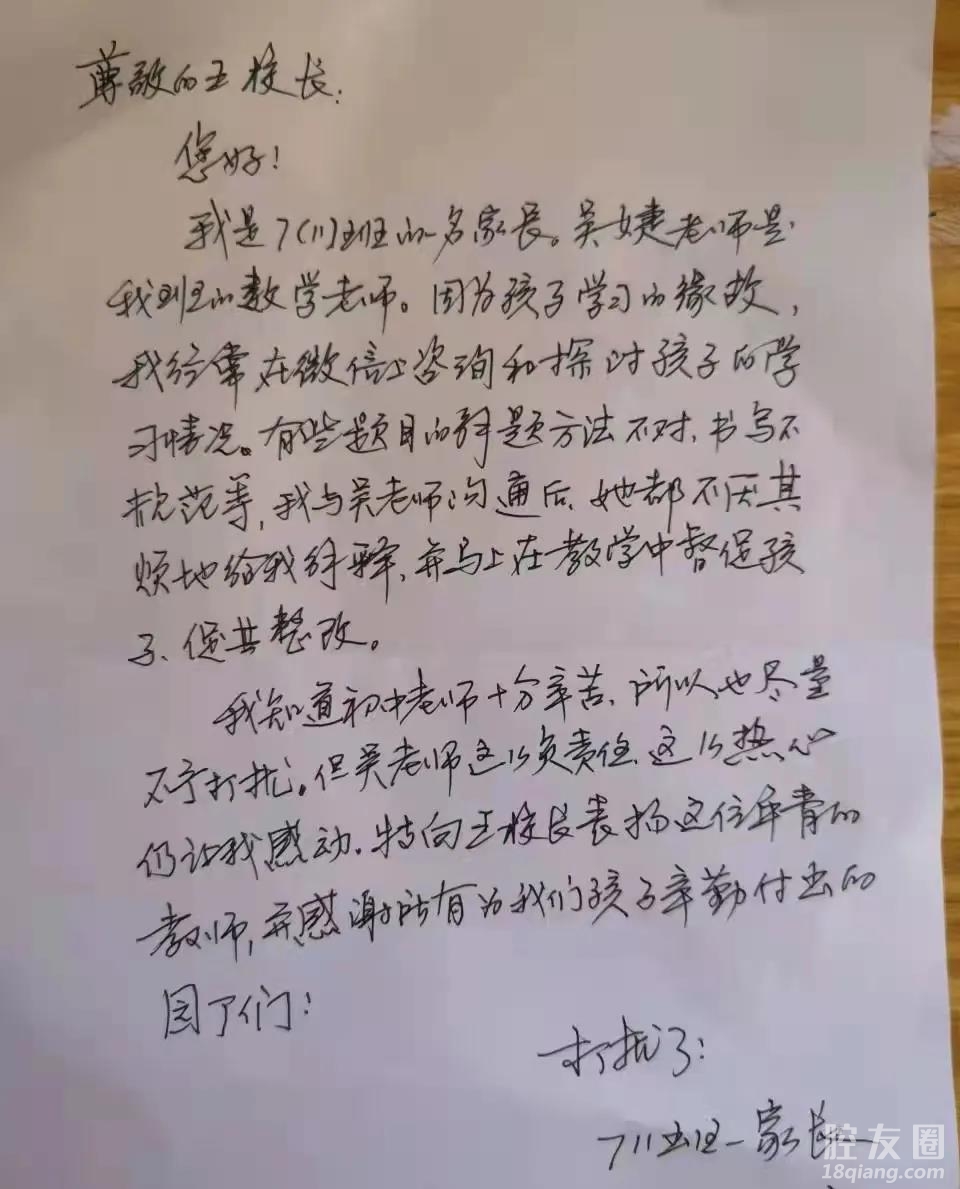 尊敬的王校长:
您好!
我是7(11)班的一名家长。吴婕老师是
我班的数学老师。因为孩子学习的缘故,
我经常在微信上咨询和探讨孩子的学
习情况。有些题目的解题方法不对,书写不
规范等,我与吴老师沟通后,她都不厌其
烦地给我解释,并马上在教学中督促孩
子、促其整改。
我知道初中老师十分辛苦,所以也尽量
不予打扰。但吴老师这么负责任,这么热心
仍让我感动,特向王校长表扬这位年青的
教师,并感谢所有为我们孩子辛勤付出的
园丁们!
打扰了!
711班一家长
腔友圈
18qiang.com